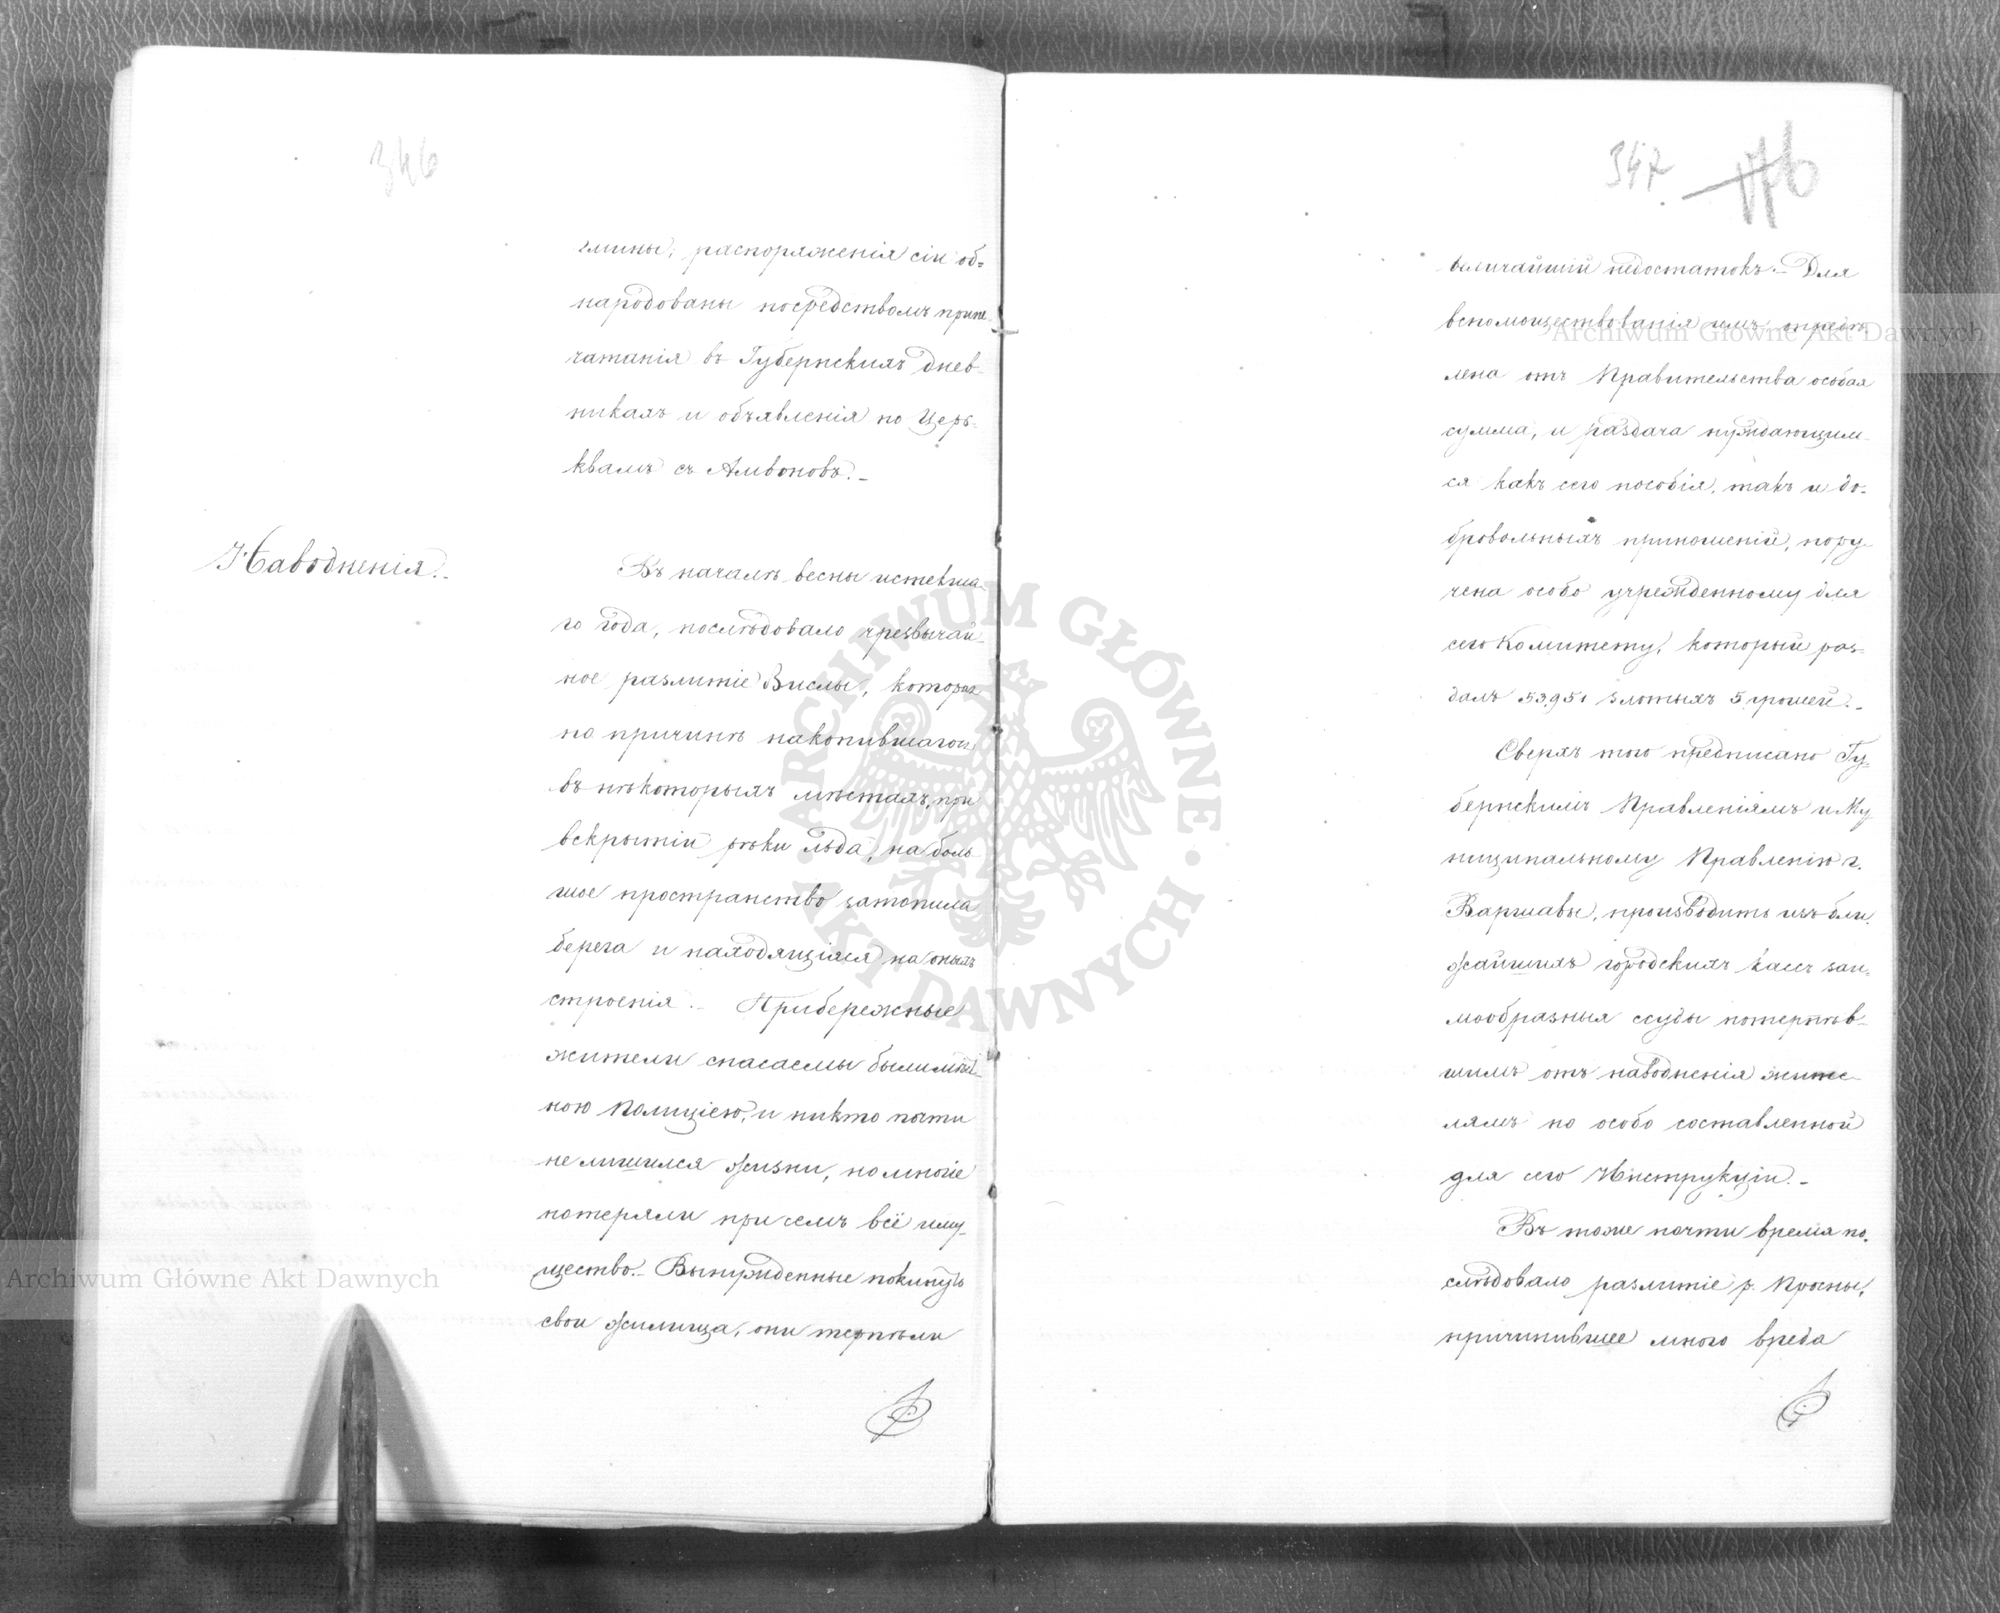 346
гмины; распоряженія сіи об-
народованы посредствомъ припе-
чатанія въ Губернскихъ днев-
никахъ и объявленія по Церь-
квамъ съ Амвоновъ.-
Наводненія.-
Въ началѣ весны истекша-
го года, послѣдовало чрезвычай-
ное разлитіе Вислы, которая
по причинѣ накопившагося
въ нѣкоторыхъ мѣстахъ, при
вскрытіи рѣки льда, на боль-
шое пространство затопила
берега и находящіяся на оныхъ
строенія.- Прибережные
жители спасаемы были мѣст-
ною Полиціею, и никто почти
не лишился жизни, но многіе
потеряли при семъ всё иму-
щество.- Вынужденные покинуть
свои жилища, они терпѣли
347. 176
величайшій недостатокъ.- Для
вспомоществованія имъ опредѣ-
лена отъ Правительства особая
сумма, и раздача нуждающим-
ся какъ сего пособія, такъ и до-
бровольныхъ приношеній, пору-
чена особо учрежденному для
сего Комитету, который раз-
далъ 53,951 злотыхъ 5 грошей.-
Сверхъ того предписано Гу-
бернскимъ Правленіямъ и Му-
ниципальному Правленію г.
Варшавы, производить изъ бли-
жайшихъ городскихъ кассъ заи-
мообразныя ссуды потерпѣв-
шимъ отъ наводненія жите-
лямъ по особо составленной
для сего Инструкціи.-
Въ тоже почти время по-
слѣдовало разлитіе р. Просны,
причинившее много вреда
ARCHIWUM GŁÓWNE · AKT DAWNYCH ·
Archiwum Główne Akt Dawnych
Archiwum Główne Akt Dawnych